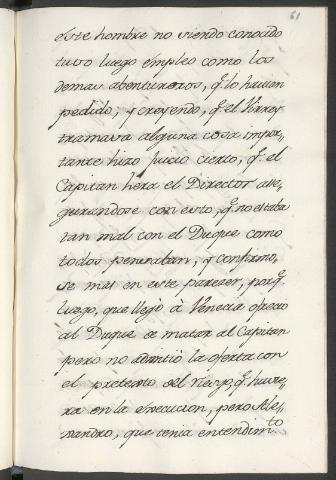 61
este hombre no siendo conocido
tuvo luego empleo como los
demas abentureros, q.lo havian
pedido, y creyendo, q.el Virrey
tramava alguna cosa impor,
tante hizo juicio cierto, q. el
Capitan hera el Director ase,
gurandose con esto, q.no estaba
tan mal con el Duque como
todos pensaban, y confirmo,
se mas en este parecer, porq.
luego, que llegò à Venecia ofrecio
al Duque de matar al Capitan
pero no admitiò la oferta con
el pretexto del riesgo, q. huvie,
ra en la execucion, pero Ale,
xandro, que tenia entendim.to